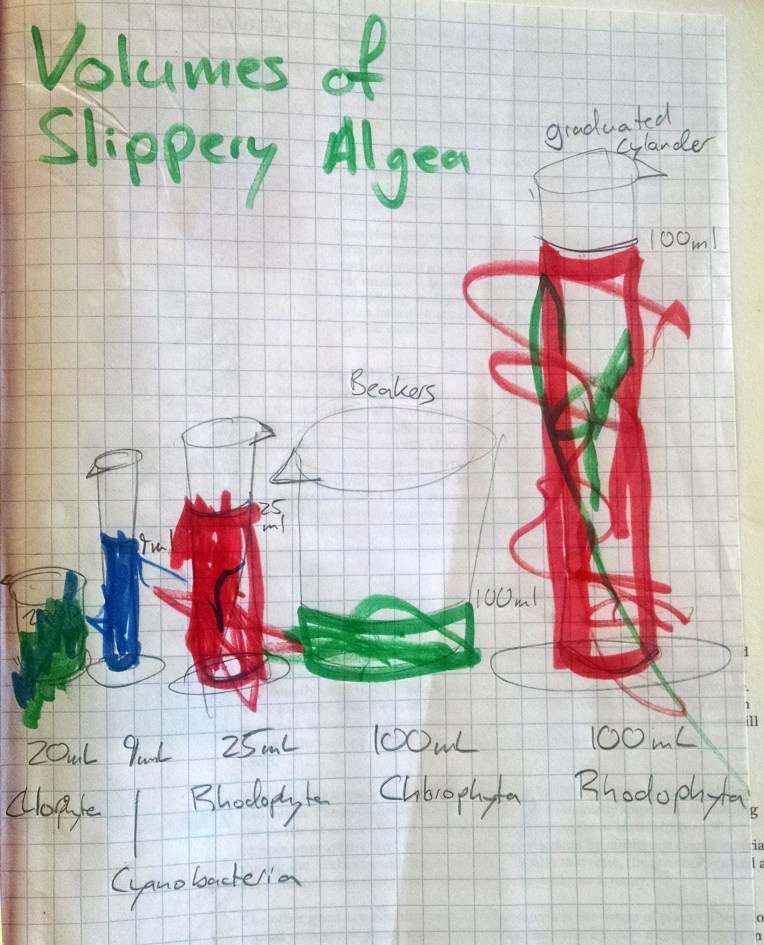 Volumes of
Slippery Algea
graduated
cylander
100ml
Beakers
25
ml
9ml
100ml
20mL 9mL 25mL 100mL 100mL
Rhodophyta Chlorophyta Rhodophyta
Cyanobacteria